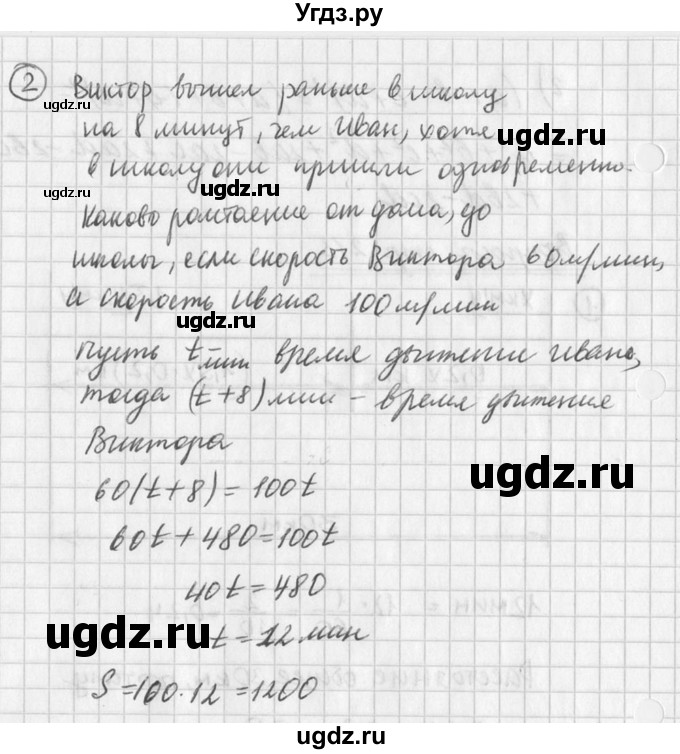 Угдз.ру
2 Виктор вышел раньше в школу
на 8 минут, чем Иван, хотя
в школу они пришли одновременно.
Каково расстояние от дома, до
школы, если скорость Виктора 60 м/мин,
а скорость Ивана 100 м/мин
Пусть t мин - время движение Ивана,
тогда (t+8) мин - время движения
Виктора
60(t+8)=100t
60t+480=100t
40t=480
t=12 мин
S=100·12=1200
ugdz.ru
ugdz.ru
ugdz.ru
ugdz.ru
ugdz.ru
ugdz.ru